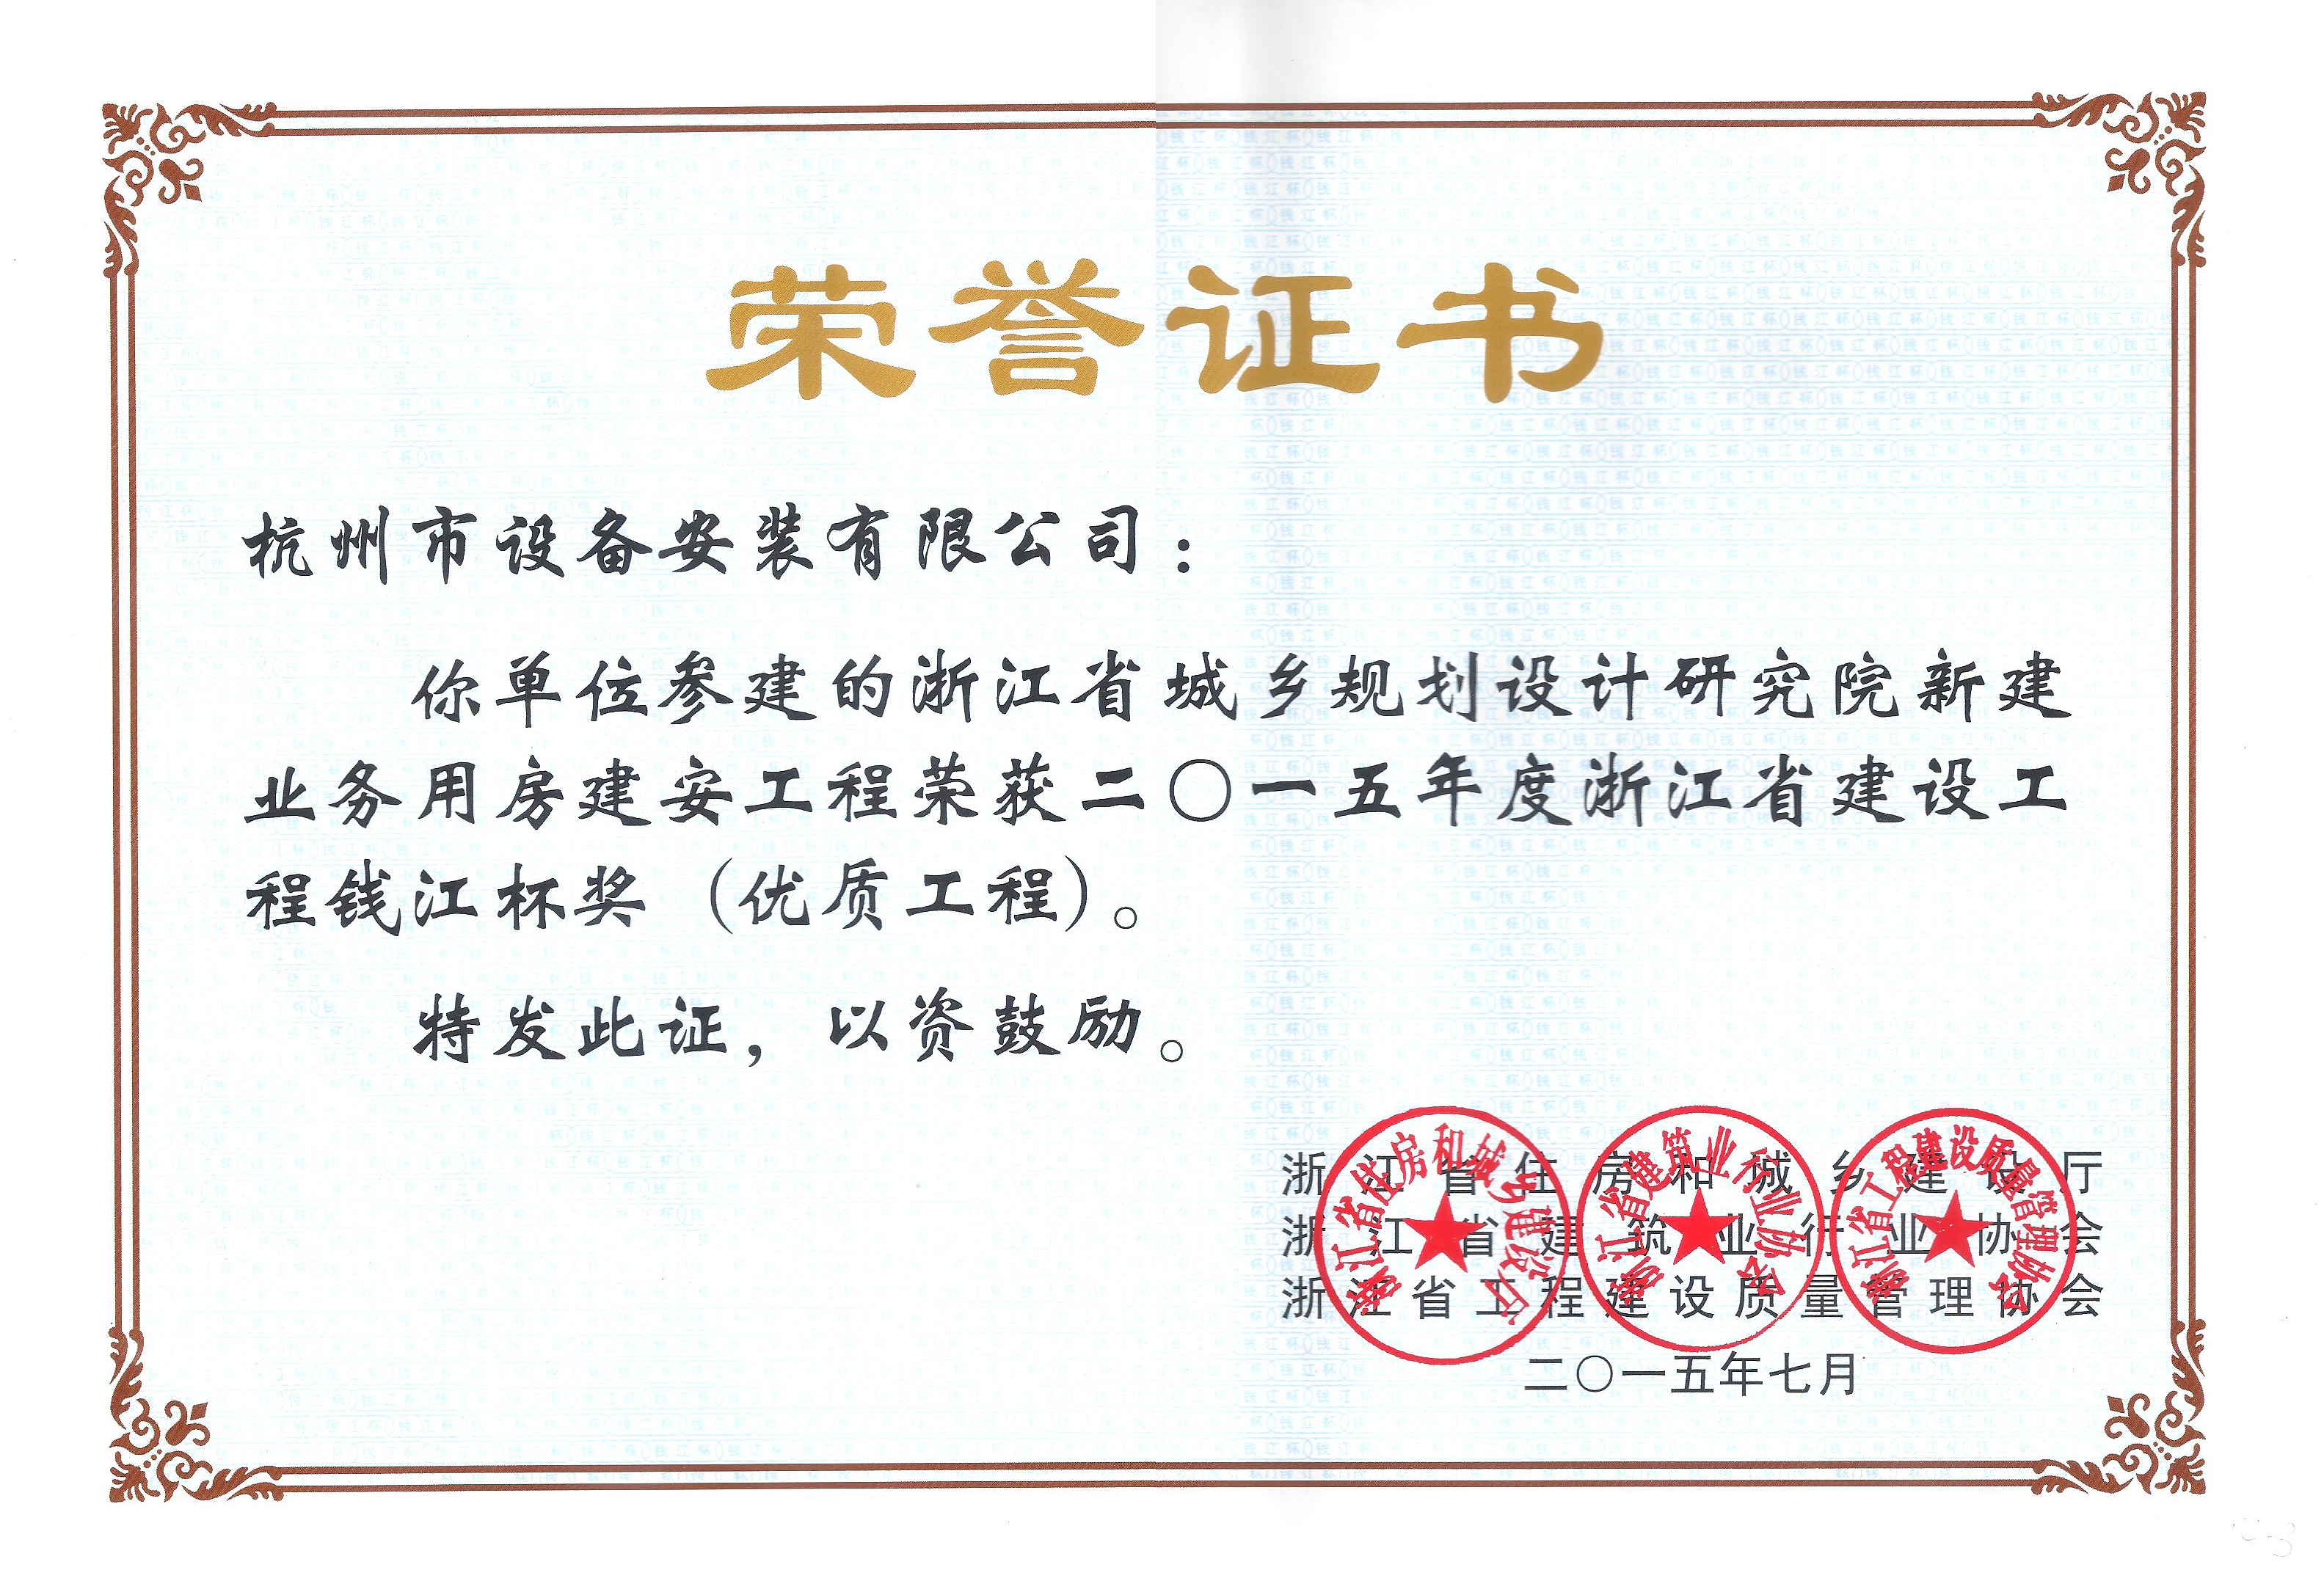 荣誉证书
杭州市设备安装有限公司：
你单位参建的浙江省城乡规划设计研究院新建
业务用房建安工程荣获二〇一五年度浙江省建设工
程钱江杯奖（优质工程）。
特发此证，以资鼓励。
浙江省住房和城乡建设厅
浙江省建筑业行业协会
浙江省工程建设质量管理协会
二〇一五年七月
浙江省住房和城乡建设厅
浙江省建筑业行业协会
浙江省工程建设质量管理协会